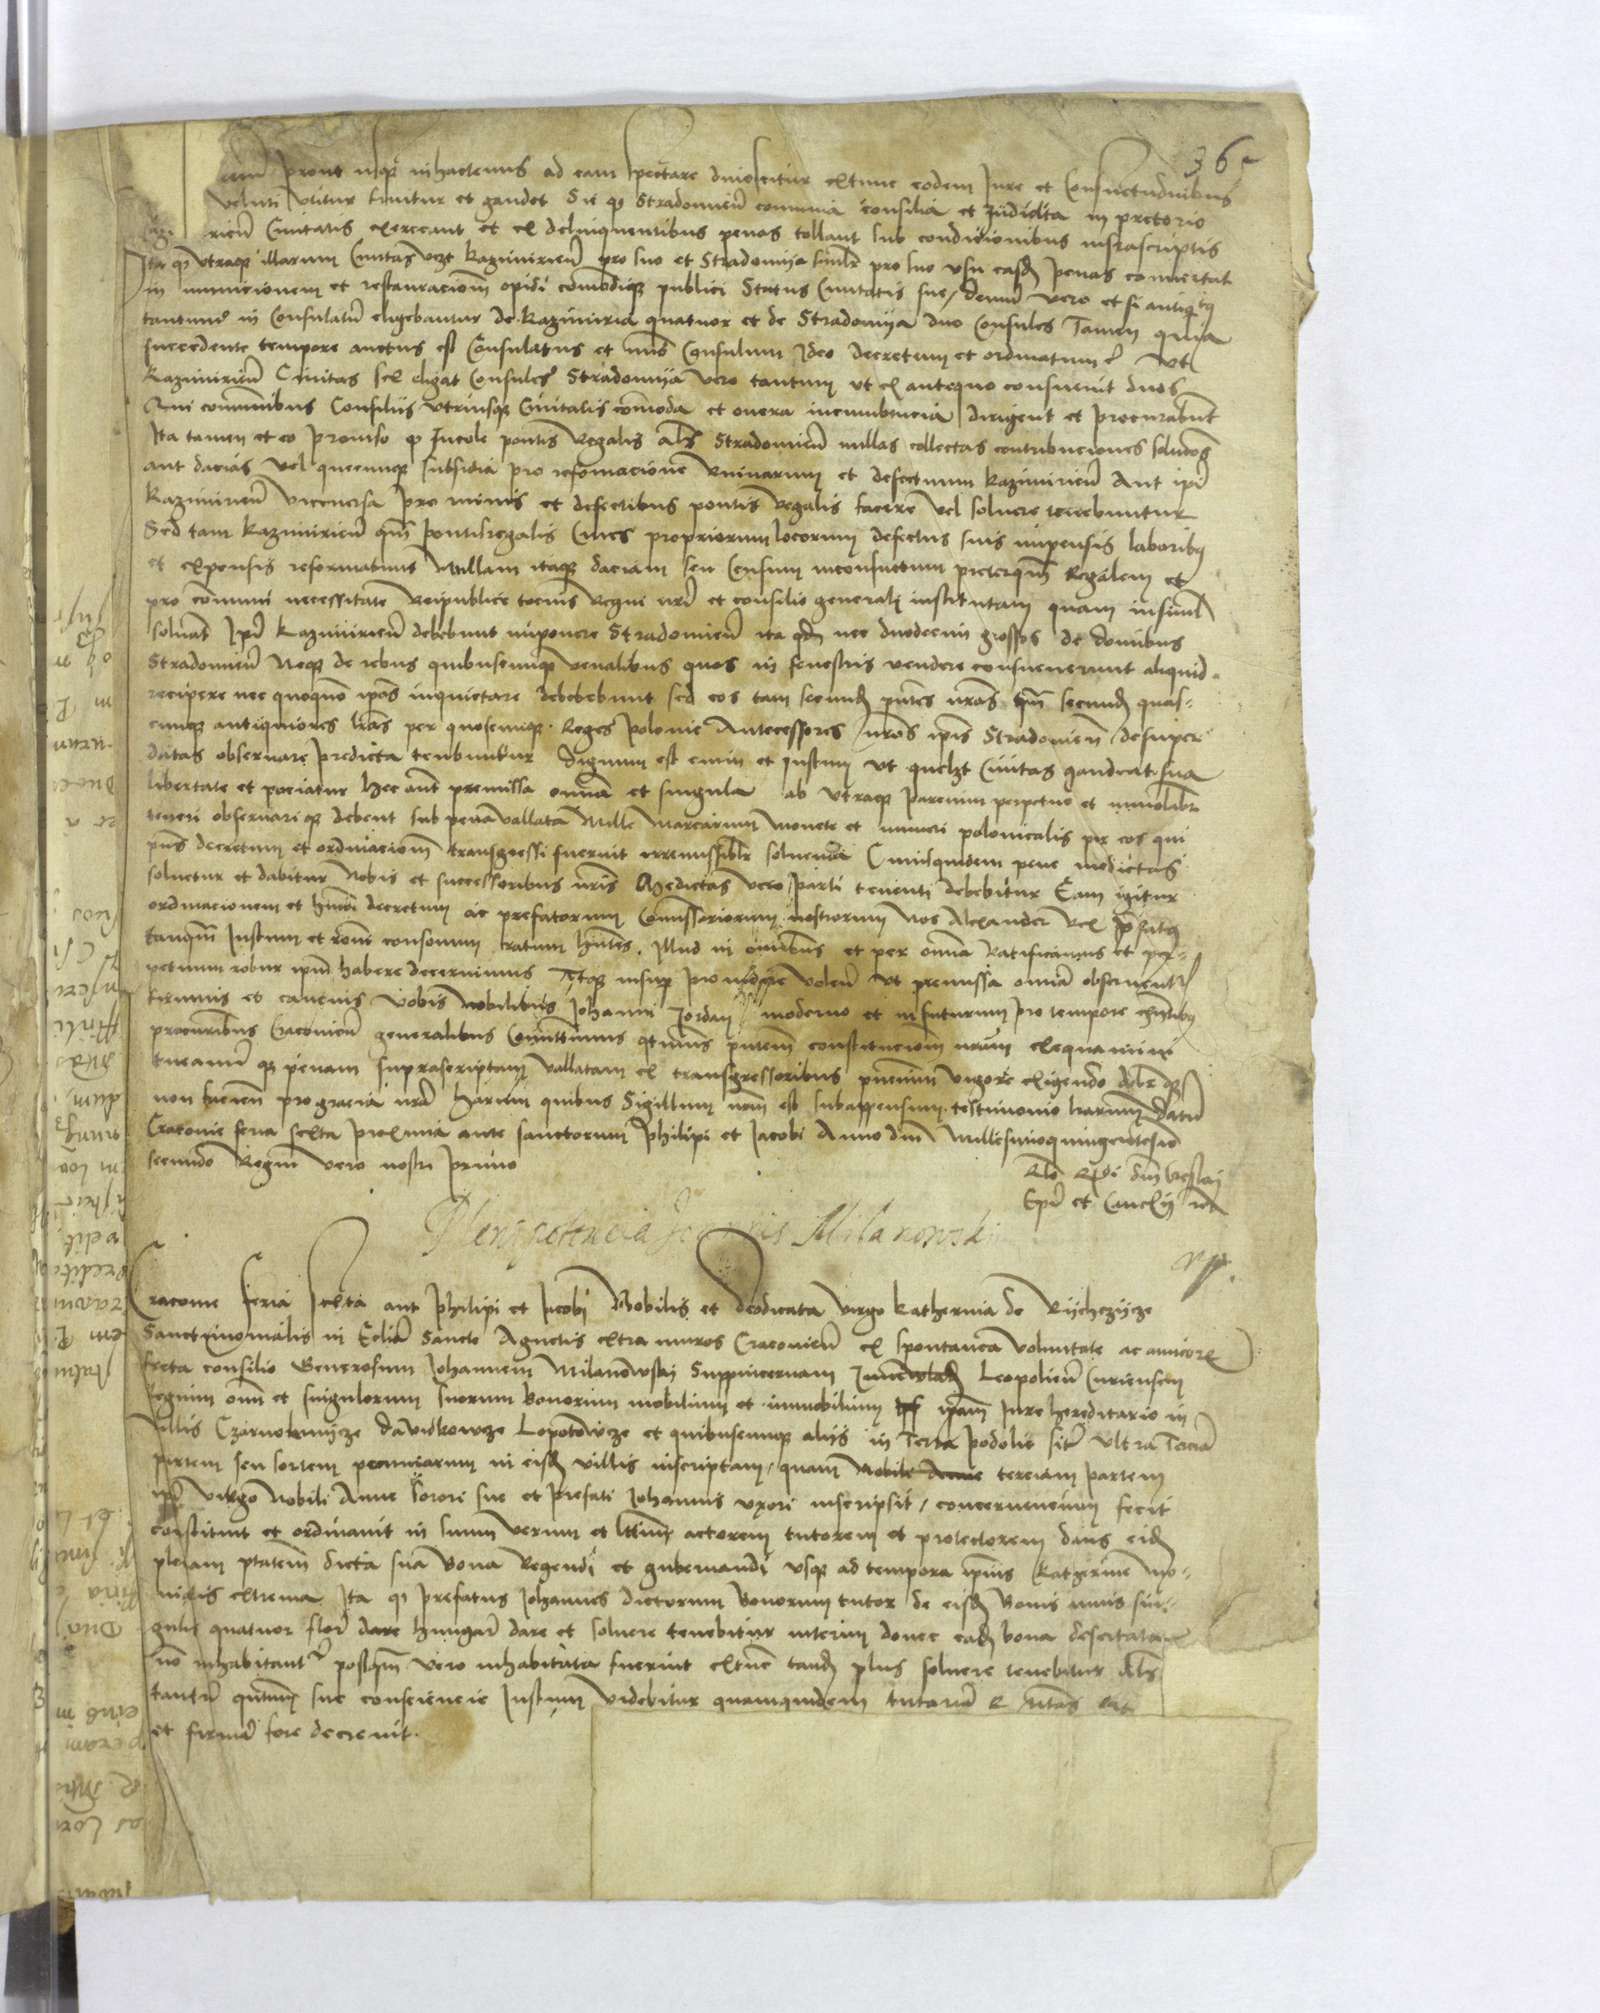 36
prout usque inhactenus ad eam spectare dinoscitur extunc eodem Jure et Consuetudinibus
veluti utitur fruitur et gaudet Sic q Stradomien comunia consilia et Judicia in pretorio
rien Civitatis exerceant et ex delinquentibus penas tollant sub condicionibus infrascriptis
Ita q utraque illarum Civitas vzt Kazimirien pro suo et Stradomija similr pro suo usu easd penas convertat
in municionem et restauraciom opidi comodique publici Status Civitatis sue / demu vero et si antiqtq
tantum in Consulatu eligebantur de Kazimiria quatuor et de Stradomija duo Consules Tamen quia
succedente tempore auctus est Consulatus et nus Consulum Ideo decretum et ordinatum e Ut
Kazimirien Civitas sex eligat Consules Stradomija vero tantum ut ex antequo consuevit duos
Qui comunibus Consiliis utriusque Civitatis comoda et onera incumbencia dirigent et procurabunt
Ita tamen et eo proviso q Incole pontis Regalis als Stradomien nullas collectas contribuciones solidos
aut dacias vel quecunque subsidia pro reformacione Ruinarum et defectuum Kazimirien Aut ipi
Kazimirien viceversa pro ruinis et defectibus pontis Regalis facere vel solvere tenebuntur
Sed tam Kazimirien qm pontisregalis Cives propriorum locorum defectus suis impensis laboribq
et expensis reformabunt Nullam itaque daciam seu Censum inconsuetum preterqm Regalem et
pro comuni necessitate Reipublice tocius Regni nri et consilio generali institutam quam insimul
solvat Ipi Kazimirien debebunt imponere Stradomien ita qd nec duodecim grossos de domibus
Stradomien Neque de rebus quibuscunque venalibus quos in fenestris vendere consueverunt aliquid
recipere nec quoquo ipos inquietare debebunt sed eos tam secund pntes nras qm secund quas-
cunque antiquiores lras per quoscunque Reges polonie Antecessores nros ipis Stradomien desuper
datas observare predicta tenbuntur Dignum est enim et Justum ut quelzt Civitas gaudeat sua
libertate et pociatur Hec aut premissa omia et singula ab utraque parcium perpetuo et inviolibr
teneri observarique debent sub pena vallata Mille Marcarum Monete et numeri polonicalis per eos qui
pns decretum et ordinaciom transgressi fuerint irremissiblr solvenda Cuiusquidem pene medietas
solvetur et dabitur Nobis et successoribus nris Medietas vero parti tenenti debebitur Eam igitur
ordinacionem et hmoi decretum ac prefatorum Comissariorum nostrorum Nos Alexander Rex pfatq
tanqm Justum et roni consonum gratum hntes. Illud in omibus et per omia Ratificamus et per-
petuum robur ipm habere decernimus Atque insup providere volen ut premissa omia observent
firmius et caucius vobis Nobilibus Johanni Jordan moderno et in futurum pro tempore existibq
procuribus Cracovien generalibus Comittimus qtenus pntem constituciom nram exequamini
tueamini que penam suprascriptam vallatam ex transgressoribus pnctium vigore exigendo
non facien pro gracia nra Harum quibus Sigillum nrm est subappensum testimonio lrarum Datu
Cracovie feria sexta proxima ante sanctorum Philipi et Jacobi Anno dni Millesimoquingentesio
secundo Regni vero nostri primo
Rlo Rdi dni Vrslaij
Epi et Cancllij
Plenipotencia Joannis Milanowski
Cracovie feria sexta ant Philipi et Jacobi Nobilis et deodicata virgo Katherina de Rijhczijcze
Sanctimonialis in Eclia Sancte Agnetis extra muros Cracovien ex spontanea voluntate ac amicore
freta consilio Generosum Johannem Milanowski Suppincernam Leopolien Curiensem
Regium omi et singulorum suorum bonorum mobilium et immobilium ipam Jure hereditario in
villis Czarnokunijcze Davidkowcze Lopotowcze et quibuscunque aliis in Terra podolie sit ultra Tercia
partem seu sortem pecuniarum in eisd villis inscriptam / quam Nobili Anne terciam partem
ipa virgo Nobili Anne Sorori sue et prefati Johannis uxori inscripsit / concernencium fecit
constituit et ordinavit in suum verum et lttium actorem tutorem et protectorem dans eid
plenam ptatem dicta sua bona Regendi et gubernandi usque ad tempora ipius Katherine mo-
nialis extrema Ita q prefatus Johannes dictorum bonorum tutor de eisd bonis annis sin-
gulis quatuor flor dare hungar dare et solvere tenebitur interim donec ead bona desertata
no inhabitant postqm vero inhabitata fuerint extuc tand plus solvere tenebitur als
tantu qntum sue consciencie Justum videbitur quamquidem tutoria
et firma fore decrevit.